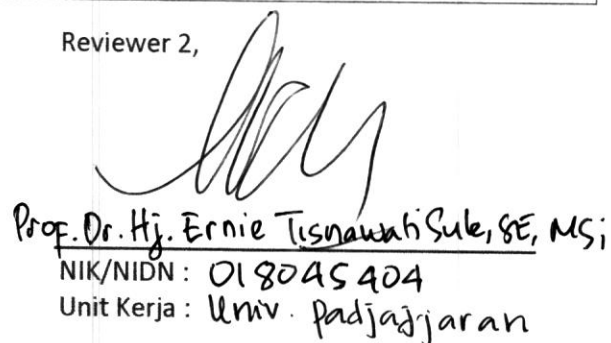 Reviewer 2,
Prof. Dr. Hj. Ernie Tisnawati Sule, SE, MSi
NIK/NIDN : 018045404
Unit Kerja : Univ. Padjadjaran